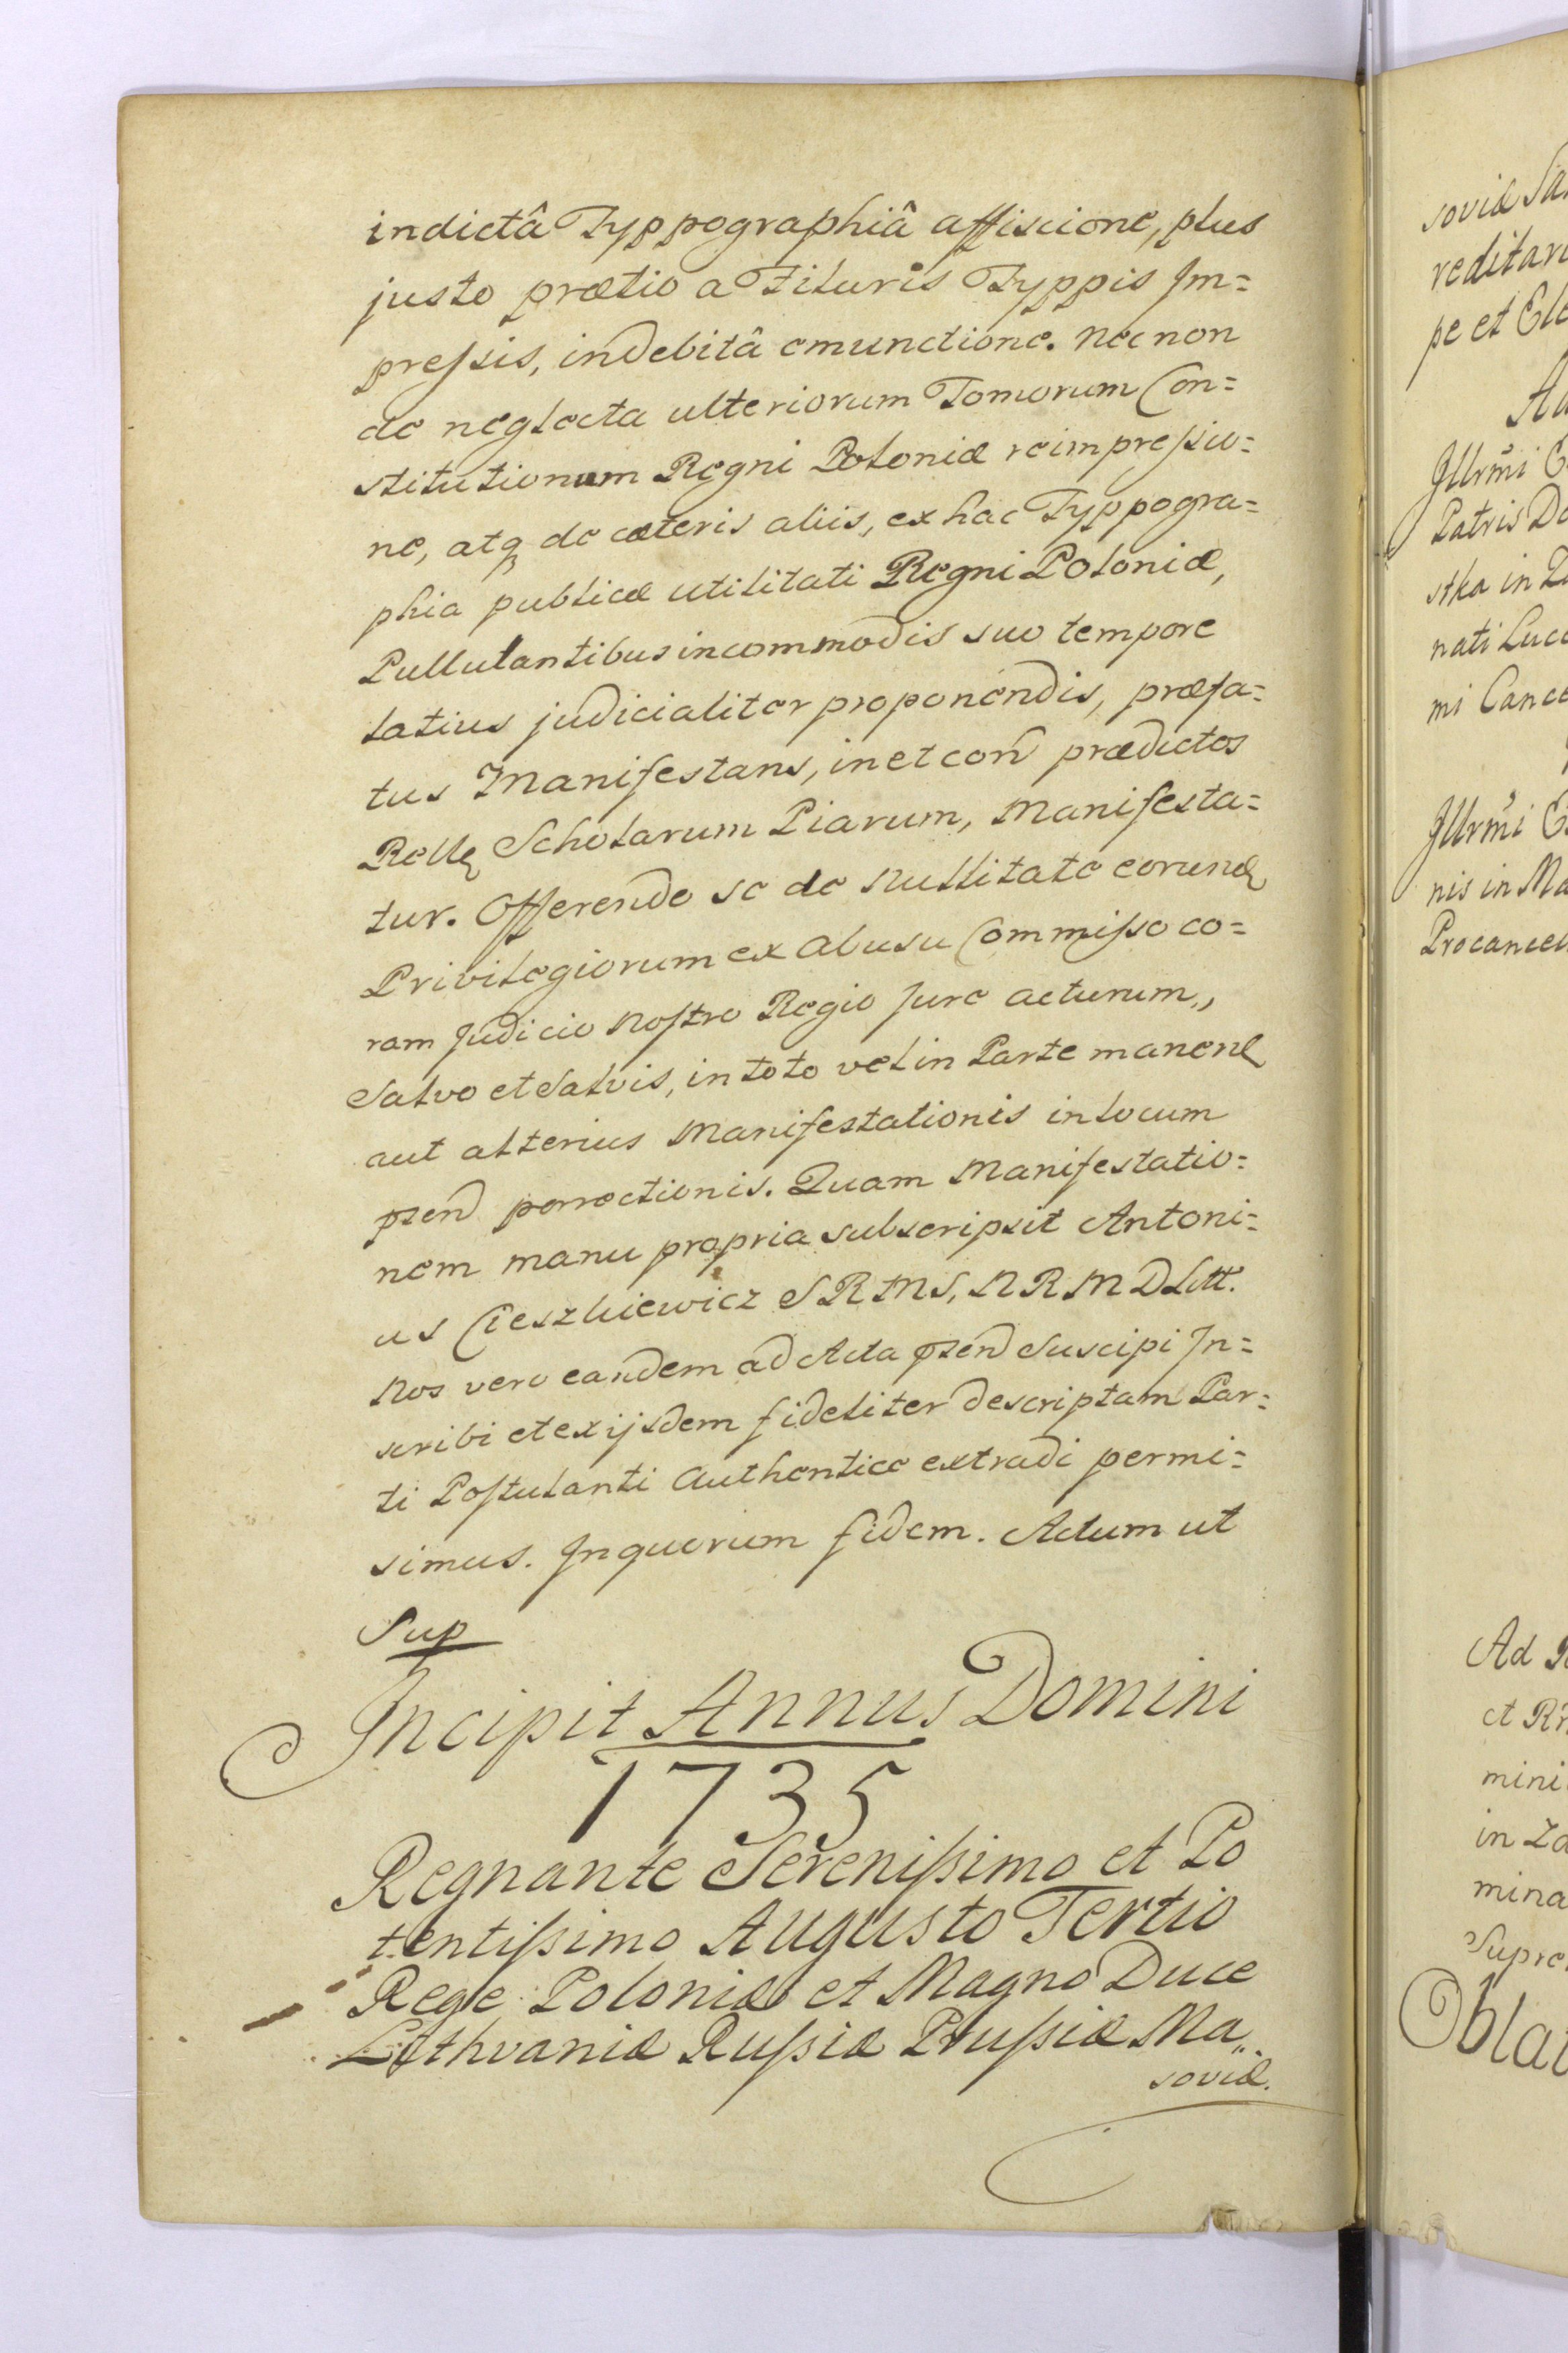 indictâ Typpographiâ affiscione, plus
justo prætio a Tituris Typpis Im=
preſsis, indebitâ emunctione. nec non
de neglecta ulteriorum Tomorum Con=
stitutionum Regni Poloniæ reimpreſsio=
ne, atq; de cæteris aliis, ex hac Typpogra=
phia publicæ utilitati Regni Poloniæ,
Pullulantibus incommodis suo tempore
latius judicialiter proponendis, præfa=
tus Manifestans, in et con prædictos
Rellg Scholarum Piarum, Manifesta=
tur. Offerendo se de Nullitate eorund
Privilegiorum ex abusu Commiſso co=
ram Judicio Noſtro Regio Jure acturum,,
Salvo et Salvis, in toto vel in Parte manend
aut alterius Manifestationis in locum
pzend porrectionis. Quam Manifestatio=
nem manu propria subscripsit Antoni=
us Cieszkiewicz SRMS, NRMDLitt.
Nos vero eandem ad Acta pzend Suscipi In=
scribi et ex ijsdem fideliter descriptam Par=
ti Poſtulanti Authentice extradi permi=
simus. In quorum fidem. Actum ut
Sup
Incipit Annus Domini
1735
Regnante Sereniſsimo et Po
tentiſsimo Augusto Tertio
Rege Poloniæ et Magno Duce
Lithvaniæ Ruſsiæ Pruſsiæ Ma„
soviæ.
soviæ
reditari
pe et Ele
Ad
Jllrmi
Patris Do
stka in
nati Luce
mi Cance
Jllrmi
nis in Ma
Procancel
Ad
et
mini
in Za
mina
Supre
Oblat